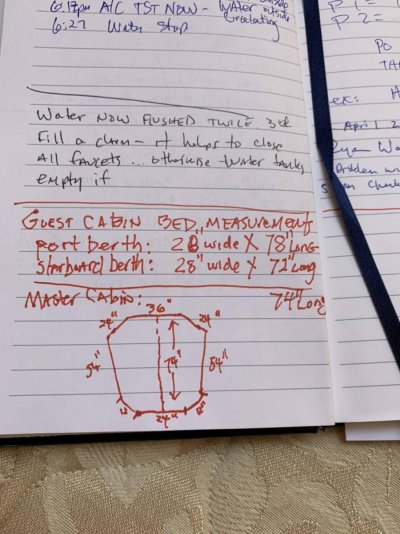 6:17pm A/C TST NOW - Water outside
circulating
6:27 Water Stop
Water NOW FLUSHED TWICE 3rd
Fill a charm - it helps to close
All faucets... otherwise water tanks
empty if
GUEST CABIN BED MEASUREMENTS
Port berth: 28" wide X 78" Long
Starboard berth: 28" wide X 72" Long
MASTER CABIN: 74" Long
36"
24" 24"
54" 74" 54"
12" 24" 12"
P 1 =
P 2 =
Po
ex:
April 1 2
Ryan Wa
Problem wi